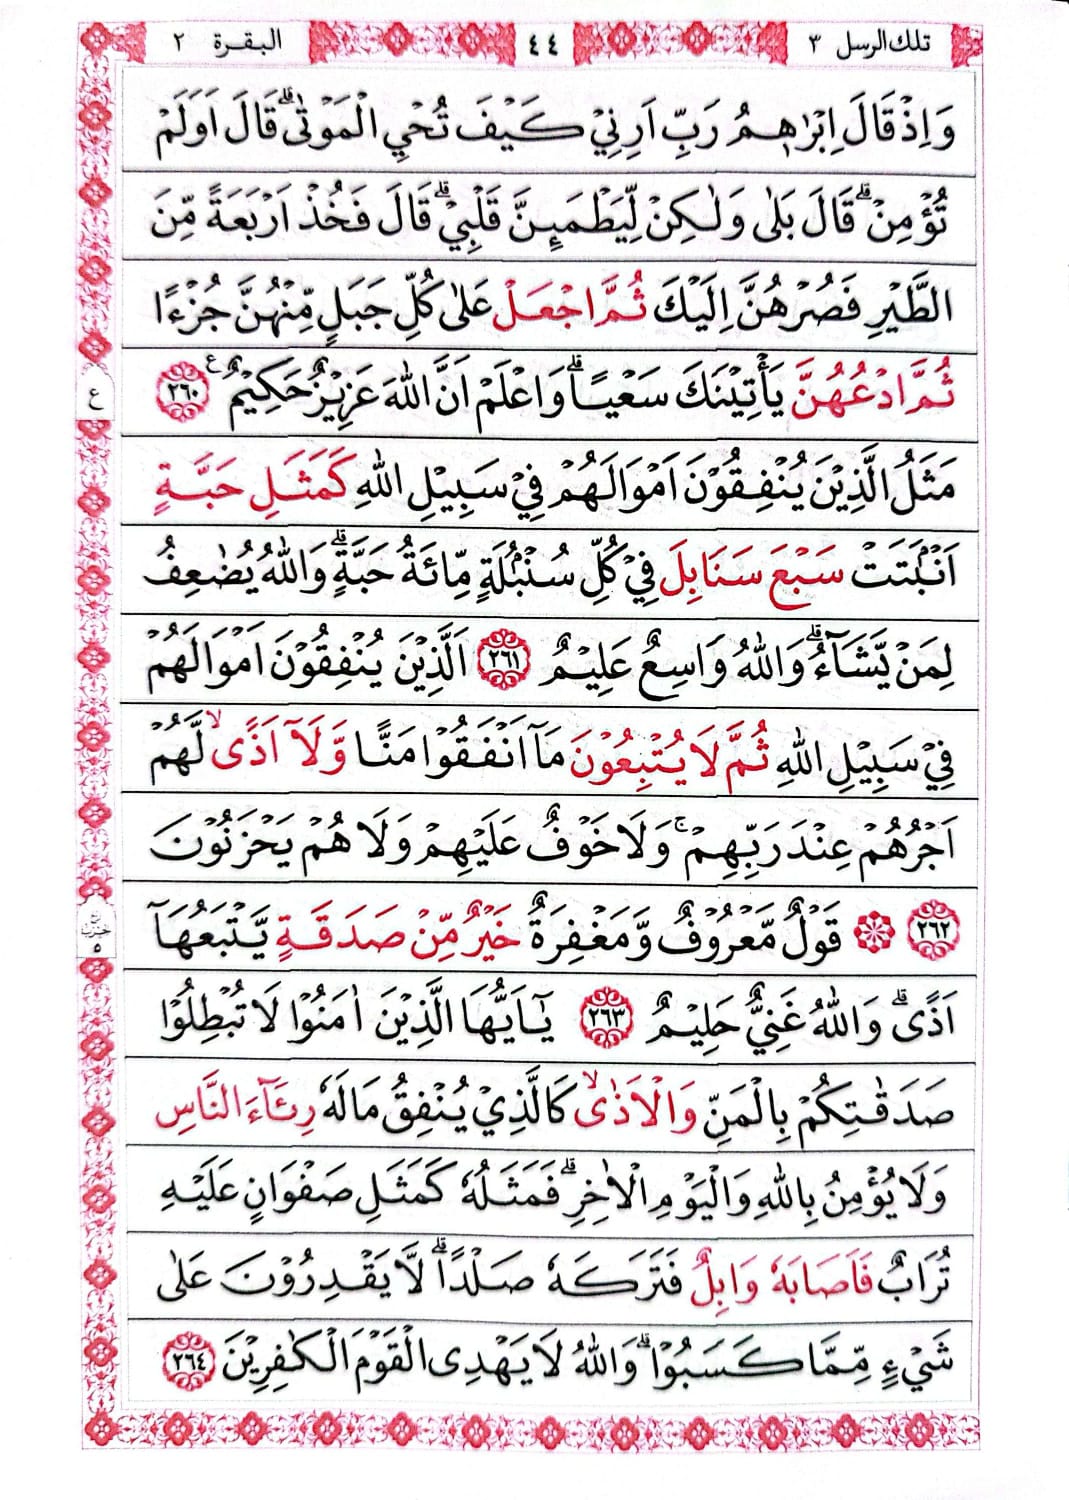 تلك الرسل ٣
٤٤
البقرة ٢
وَاِذْ قَالَ اِبْرٰهٖمُ رَبِّ اَرِنِيْ كَيْفَ تُحْيِ الْمَوْتٰىۗ قَالَ اَوَلَمْ
تُؤْمِنْۗ قَالَ بَلٰى وَلٰكِنْ لِّيَطْمَىِٕنَّ قَلْبِيْۗ قَالَ فَخُذْ اَرْبَعَةً مِّنَ
الطَّيْرِ فَصُرْهُنَّ اِلَيْكَ ثُمَّ اجْعَلْ عَلٰى كُلِّ جَبَلٍ مِّنْهُنَّ جُزْءًا
ثُمَّ ادْعُهُنَّ يَأْتِيْنَكَ سَعْيًاۗ وَاعْلَمْ اَنَّ اللّٰهَ عَزِيْزٌ حَكِيْمٌ ࣖ ٢٦٠
ع
مَثَلُ الَّذِيْنَ يُنْفِقُوْنَ اَمْوَالَهُمْ فِيْ سَبِيْلِ اللّٰهِ كَمَثَلِ حَبَّةٍ
اَنْۢبَتَتْ سَبْعَ سَنَابِلَ فِيْ كُلِّ سُنْۢبُلَةٍ مِّائَةُ حَبَّةٍۗ وَاللّٰهُ يُضٰعِفُ
لِمَنْ يَّشَاۤءُۗ وَاللّٰهُ وَاسِعٌ عَلِيْمٌ ٢٦١ اَلَّذِيْنَ يُنْفِقُوْنَ اَمْوَالَهُمْ
فِيْ سَبِيْلِ اللّٰهِ ثُمَّ لَا يُتْبِعُوْنَ مَآ اَنْفَقُوْا مَنًّا وَّلَآ اَذًىۙ لَّهُمْ
اَجْرُهُمْ عِنْدَ رَبِّهِمْۚ وَلَا خَوْفٌ عَلَيْهِمْ وَلَا هُمْ يَحْزَنُوْنَ
٢٦٢ ۞ قَوْلٌ مَّعْرُوْفٌ وَّمَغْفِرَةٌ خَيْرٌ مِّنْ صَدَقَةٍ يَّتْبَعُهَآ
حزب
٥
اَذًىۗ وَاللّٰهُ غَنِيٌّ حَلِيْمٌ ٢٦٣ يٰٓاَيُّهَا الَّذِيْنَ اٰمَنُوْا لَا تُبْطِلُوْا
صَدَقٰتِكُمْ بِالْمَنِّ وَالْاَذٰىۙ كَالَّذِيْ يُنْفِقُ مَالَهٗ رِئَاۤءَ النَّاسِ
وَلَا يُؤْمِنُ بِاللّٰهِ وَالْيَوْمِ الْاٰخِرِۗ فَمَثَلُهٗ كَمَثَلِ صَفْوَانٍ عَلَيْهِ
تُرَابٌ فَاَصَابَهٗ وَابِلٌ فَتَرَكَهٗ صَلْدًاۗ لَا يَقْدِرُوْنَ عَلٰى
شَيْءٍ مِّمَّا كَسَبُوْاۗ وَاللّٰهُ لَا يَهْدِى الْقَوْمَ الْكٰفِرِيْنَ ٢٦٤